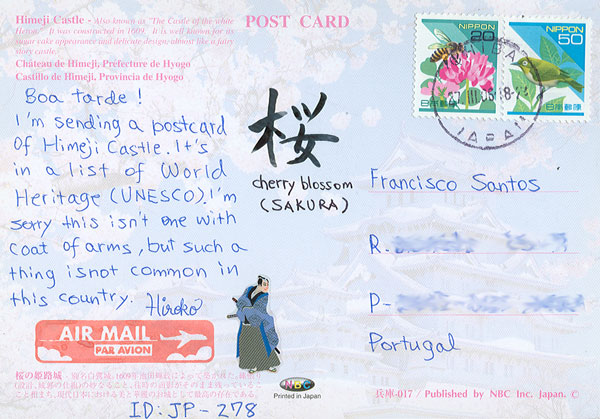 Himeji Castle - Also known as "The Castle of the white
Heron." It was constructed in 1609. It is well known for its
sugar cake appearance and delicate designs almost like a fairy
story castle.
Château de Himeji, Préfecture de Hyogo
Castillo de Himeji, Provincia de Hyogo
POST CARD
NIPPON
20
日本郵便
NIPPON
50
日本郵便
27 III 05
JAPAN
Boa tarde!
I'm sending a postcard
of Himeji Castle. It's
in a list of World
Heritage (UNESCO). I'm
sorry this isn't one with
coat of arms, but such a
thing isnot common in
this country. Hiroko
桜
cherry blossom
(SAKURA)
Francisco Santos
R.
P-
Portugal
AIR MAIL
PAR AVION
桜の姫路城
NBC
Printed in Japan
兵庫-017 / Published by NBC Inc. Japan. ©
ID: JP-278